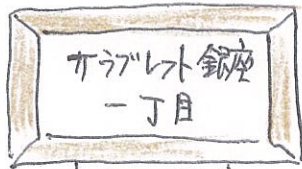 サラブレット銀座
一丁目